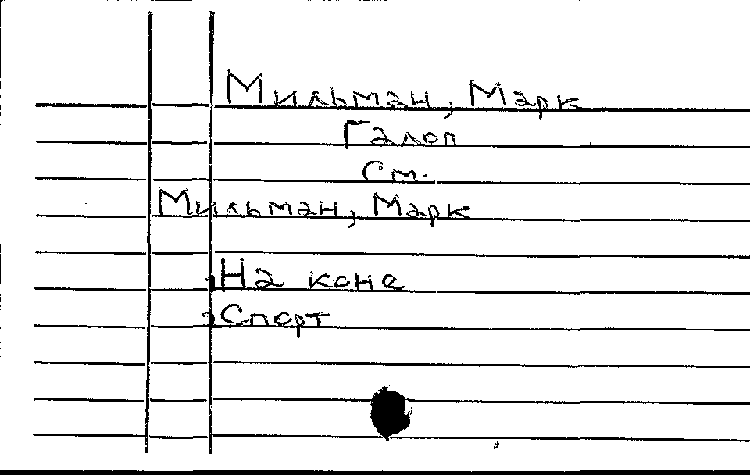 Мильман, Марк
Галоп
См.
Мильман, Марк
На коне
Спорт